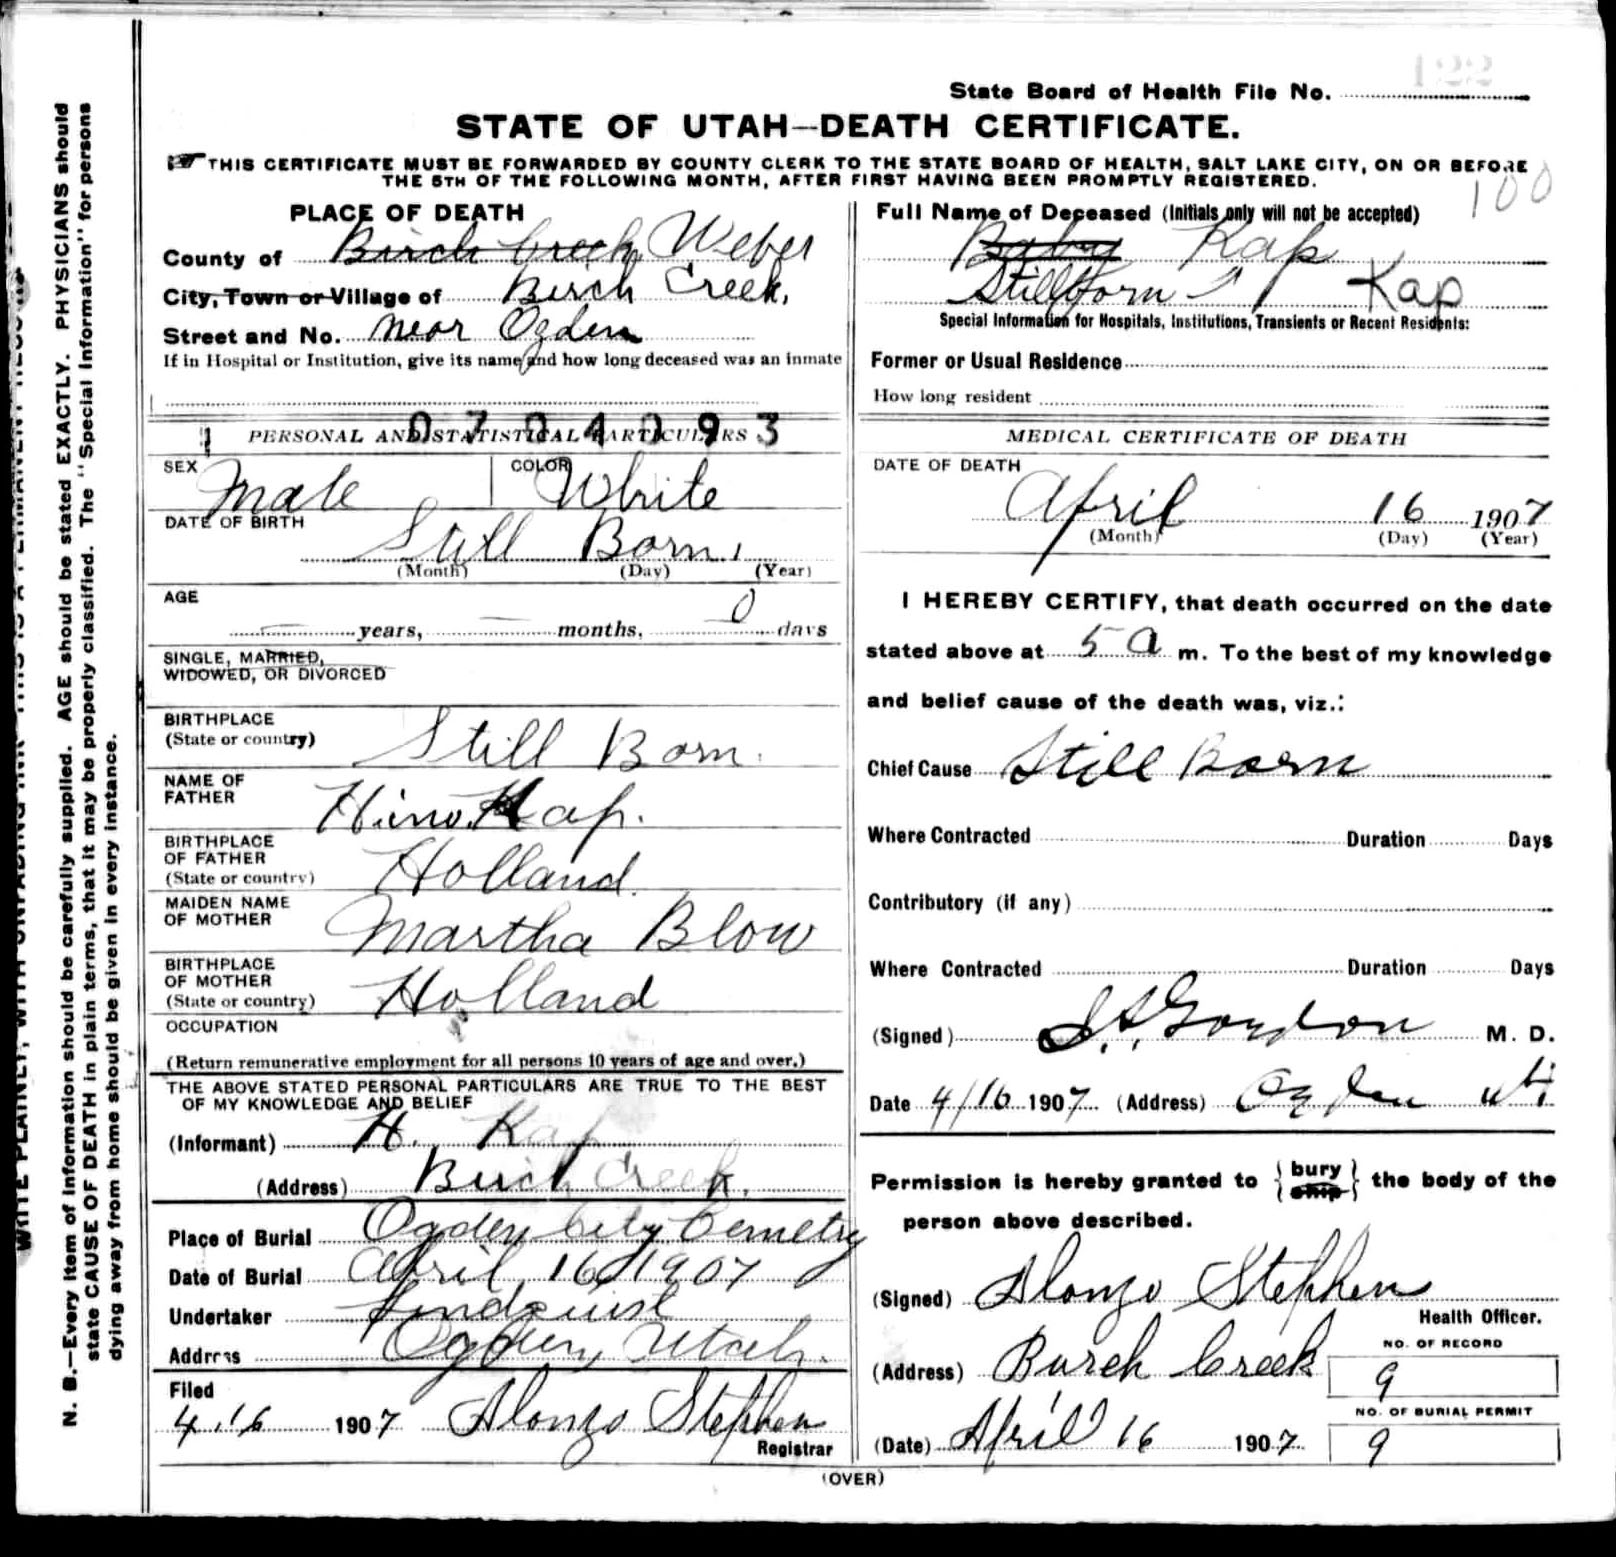 122
State Board of Health File No.
STATE OF UTAH—DEATH CERTIFICATE.
THIS CERTIFICATE MUST BE FORWARDED BY COUNTY CLERK TO THE STATE BOARD OF HEALTH, SALT LAKE CITY, ON OR BEFORE
THE 5TH OF THE FOLLOWING MONTH, AFTER FIRST HAVING BEEN PROMPTLY REGISTERED.
100
PLACE OF DEATH
County of Birch Creek Weber
City, Town or Village of Birch Creek,
Street and No. near Ogden
If in Hospital or Institution, give its name and how long deceased was an inmate
Full Name of Deceased (Initials only will not be accepted)
Baby Kap
Stillborn Kap
Special Information for Hospitals, Institutions, Transients or Recent Residents:
Former or Usual Residence
How long resident
PERSONAL AND STATISTICAL PARTICULARS
SEX Male COLOR White
DATE OF BIRTH
Still Born,
(Month) (Day) (Year)
AGE
years, months, 0 days
SINGLE, MARRIED,
WIDOWED, OR DIVORCED
BIRTHPLACE
(State or country) Still Born.
NAME OF
FATHER Kap.
BIRTHPLACE
OF FATHER
(State or country) Holland.
MAIDEN NAME
OF MOTHER Martha Blow
BIRTHPLACE
OF MOTHER
(State or country) Holland
OCCUPATION
(Return remunerative employment for all persons 10 years of age and over.)
THE ABOVE STATED PERSONAL PARTICULARS ARE TRUE TO THE BEST
OF MY KNOWLEDGE AND BELIEF
(Informant) H. Kap
(Address) Birch Creek.
Place of Burial Ogden City Cemetry
Date of Burial April 16 1907
Undertaker Lindquist
Address Ogden, Utah.
Filed
4.16 1907 Alonzo Stephen
Registrar
MEDICAL CERTIFICATE OF DEATH
DATE OF DEATH
April 16 1907
(Month) (Day) (Year)
I HEREBY CERTIFY, that death occurred on the date
stated above at 5 a m. To the best of my knowledge
and belief cause of the death was, viz.:
Chief Cause Still Born
Where Contracted Duration Days
Contributory (if any)
Where Contracted Duration Days
(Signed) Gordon M. D.
Date 4/16 1907 (Address) Ogden Ut
Permission is hereby granted to { bury ship } the body of the
person above described.
(Signed) Alonzo Stephen
Health Officer.
(Address) Burch Creek
NO. OF RECORD
9
NO. OF BURIAL PERMIT
9
(Date) April 16 1907
(OVER)
N. B.—Every item of information should be carefully supplied. AGE should be stated EXACTLY. PHYSICIANS should
state CAUSE OF DEATH in plain terms, that it may be properly classified. The "Special Information" for persons
dying away from home should be given in every instance.